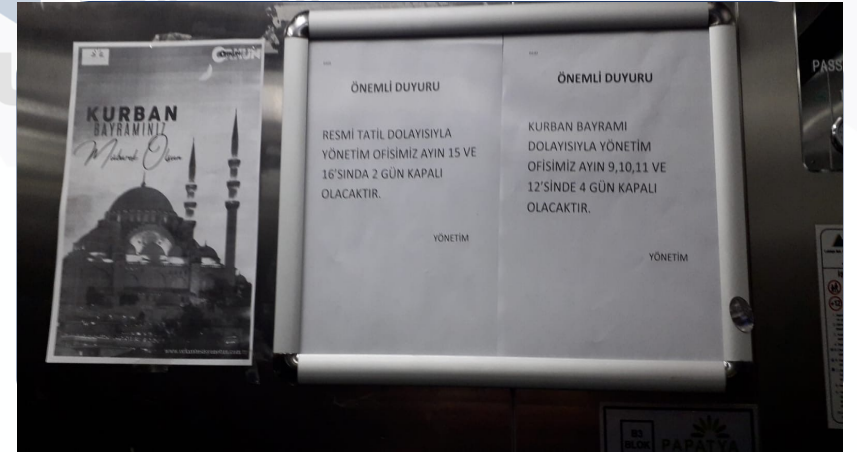 KURBAN
BAYRAMINIZ
Mübarek Olsun
ÖNEMLİ DUYURU
RESMİ TATİL DOLAYISIYLA
YÖNETİM OFİSİMİZ AYIN 15 VE
16'SINDA 2 GÜN KAPALI
OLACAKTIR.
YÖNETİM
ÖNEMLİ DUYURU
KURBAN BAYRAMI
DOLAYISIYLA YÖNETİM
OFİSİMİZ AYIN 9,10,11 VE
12'SİNDE 4 GÜN KAPALI
OLACAKTIR.
YÖNETİM
PASS
BLOK
PAPATYA